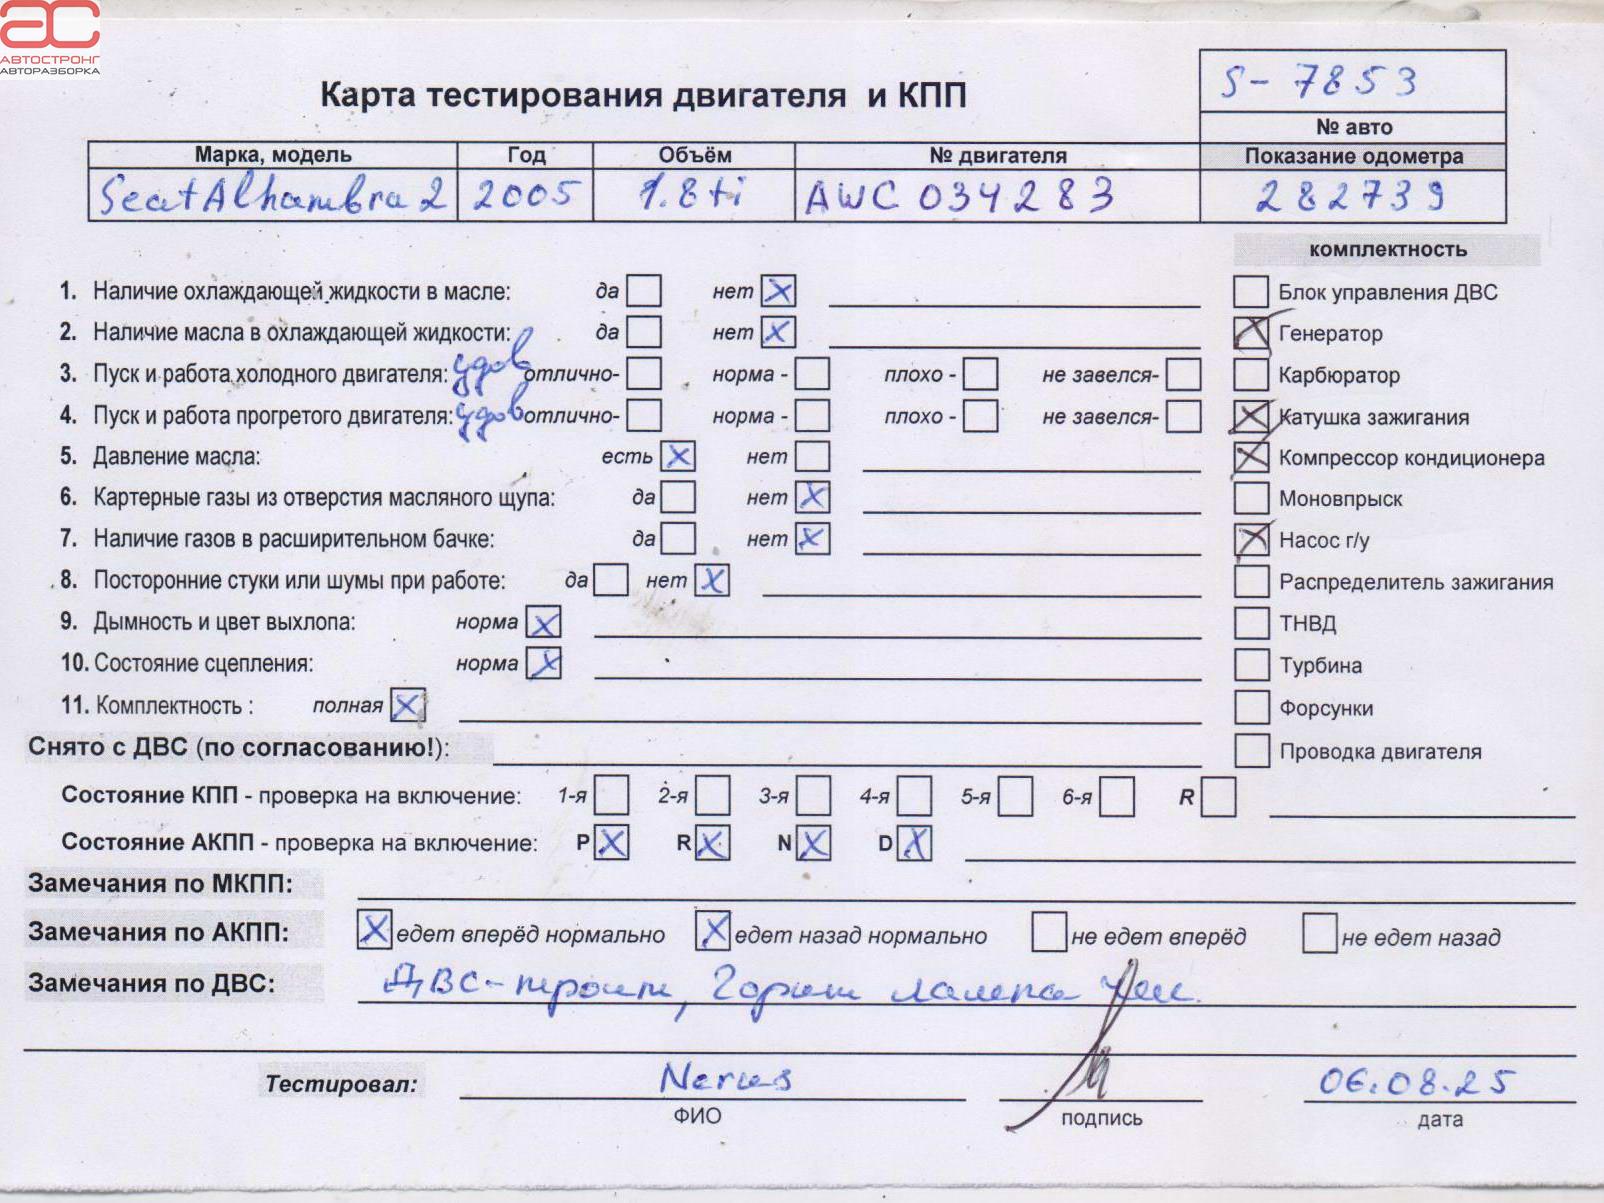 АС
АВТОСТРОНГ
АВТОРАЗБОРКА
Карта тестирования двигателя и КПП
S-7853
№ авто
Марка, модель Год Объём № двигателя Показание одометра
Seat Alhambra 2 2005 1.8 ti AWC 034283 282739
комплектность
1. Наличие охлаждающей жидкости в масле: да нет X
Блок управления ДВС
2. Наличие масла в охлаждающей жидкости: да нет X
X Генератор
3. Пуск и работа холодного двигателя: удов отлично- норма - плохо - не завелся-
Карбюратор
4. Пуск и работа прогретого двигателя: удов отлично- норма - плохо - не завелся-
X Катушка зажигания
5. Давление масла: есть X нет
X Компрессор кондиционера
6. Картерные газы из отверстия масляного щупа: да нет X
Моновпрыск
7. Наличие газов в расширительном бачке: да нет X
X Насос г/у
8. Посторонние стуки или шумы при работе: да нет X
Распределитель зажигания
9. Дымность и цвет выхлопа: норма X
ТНВД
10. Состояние сцепления: норма X
Турбина
11. Комплектность : полная X
Форсунки
Снято с ДВС (по согласованию!):
Проводка двигателя
Состояние КПП - проверка на включение: 1-я 2-я 3-я 4-я 5-я 6-я R
Состояние АКПП - проверка на включение: P X R X N X D X
Замечания по МКПП:
Замечания по АКПП: X едет вперёд нормально X едет назад нормально не едет вперёд не едет назад
Замечания по ДВС: ДВС-троит, Горит лампа
Тестировал: 06.08.25
ФИО подпись дата